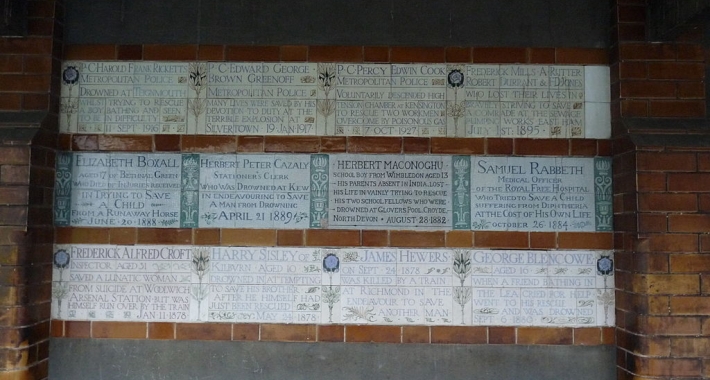 P.C. HAROLD FRANK RICKETTS
METROPOLITAN POLICE
DROWNED AT TEIGNMOUTH
WHILST TRYING TO RESCUE
A BOY BATHING AND SEEN
TO BE IN DIFFICULTY
11 SEPT 1916
P.C. EDWARD GEORGE
BROWN GREENOFF
METROPOLITAN POLICE
MANY LIVES WERE SAVED BY HIS
DEVOTION TO DUTY AT THE
TERRIBLE EXPLOSION AT
SILVERTOWN 19 JAN 1917
P.C. PERCY EDWIN COOK
METROPOLITAN POLICE
VOLUNTARILY DESCENDED HIGH
TENSION CHAMBER AT KENSINGTON
TO RESCUE TWO WORKMEN
OVERCOME BY POISONOUS GAS
7 OCT 1927
FREDERICK MILLS A RUTTER
ROBERT DURRANT & F.D. JONES
WHO LOST THEIR LIVES IN
BRAVELY STRIVING TO SAVE
A COMRADE AT THE SEWAGE
PUMPING WORKS EAST HAM
JULY 1ST 1895
ELIZABETH BOXALL
AGED 17 OF BETHNAL GREEN
WHO DIED OF INJURIES RECEIVED
IN TRYING TO SAVE
A CHILD
FROM A RUNAWAY HORSE
JUNE 20 1888
HERBERT PETER CAZALY
STATIONER'S CLERK
WHO WAS DROWNED AT KEW
IN ENDEAVOURING TO SAVE
A MAN FROM DROWNING
APRIL 21 1889
HERBERT MACONOGHU
SCHOOL BOY FROM WIMBLEDON AGED 13
HIS PARENTS ABSENT IN INDIA, LOST
HIS LIFE IN VAINLY TRYING TO RESCUE
HIS TWO SCHOOL FELLOWS WHO WERE
DROWNED AT GLOVERS POOL, CROYDE,
NORTH DEVON AUGUST 28 1882
SAMUEL RABBETH
MEDICAL OFFICER
OF THE ROYAL FREE HOSPITAL
WHO TRIED TO SAVE A CHILD
SUFFERING FROM DIPHTHERIA
AT THE COST OF HIS OWN LIFE
OCTOBER 26 1884
FREDERICK ALFRED CROFT
INSPECTOR AGED 31
SAVED A LUNATIC WOMAN
FROM SUICIDE AT WOOLWICH
ARSENAL STATION BUT WAS
HIMSELF RUN OVER BY THE TRAIN
JAN 11 1878
HARRY SISLEY OF
KILBURN AGED 10
DROWNED IN ATTEMPTING
TO SAVE HIS BROTHER
AFTER HE HIMSELF HAD
JUST BEEN RESCUED
MAY 24 1878
JAMES HEWERS
ON SEPT 24 1878
WAS KILLED BY A TRAIN
AT RICHMOND IN THE
ENDEAVOUR TO SAVE
ANOTHER MAN
GEORGE BLENCOWE
WHEN A FRIEND BATHING IN
THE LEA CRIED FOR HELP
WENT TO HIS RESCUE
AND WAS DROWNED